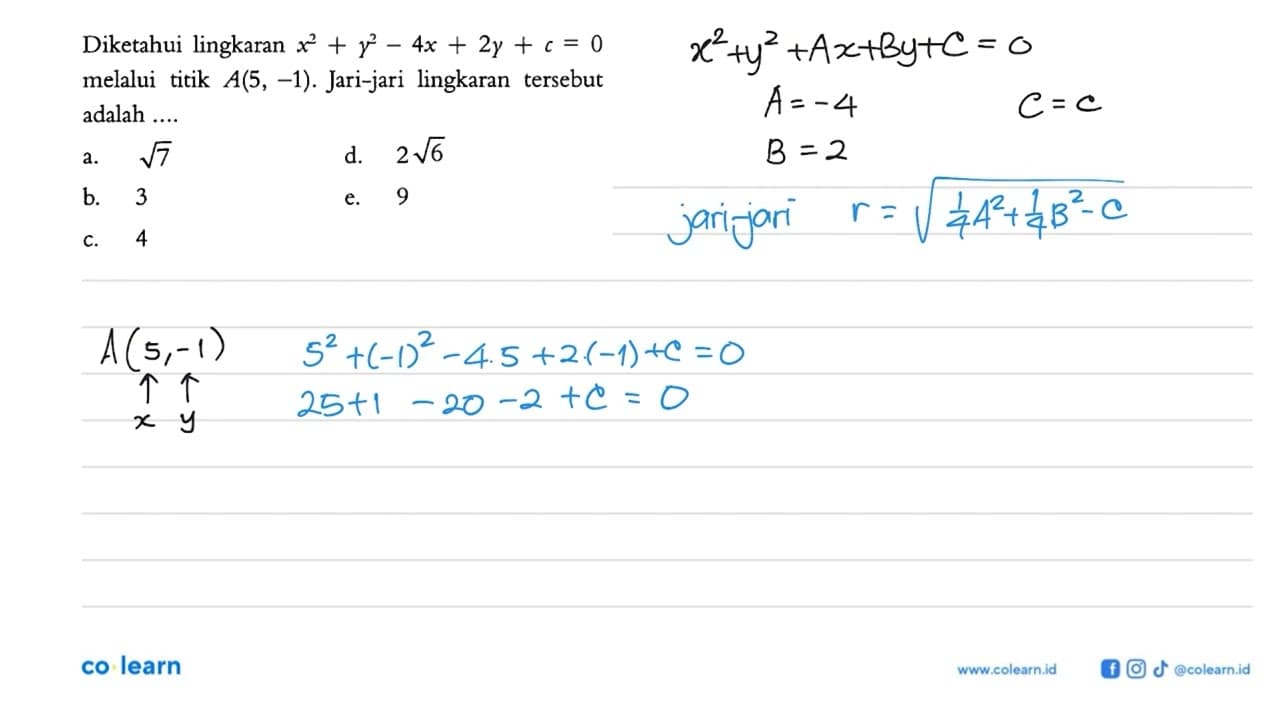 Diketahui lingkaran x² + y² − 4x + 2y + c = 0
melalui titik A(5, −1). Jari-jari lingkaran tersebut
adalah ....
a. √7
b. 3
c. 4
d. 2√6
e. 9
x²+y²+Ax+By+C=0
A=-4 C=c
B=2
jari-jari r = √(1/4 A²+1/4 B²-C)
A(5,-1)
↑ ↑
x y
5²+(-1)²-4.5+2.(-1)+C=0
25+1 -20-2+C=0
co learn
www.colearn.id
@colearn.id